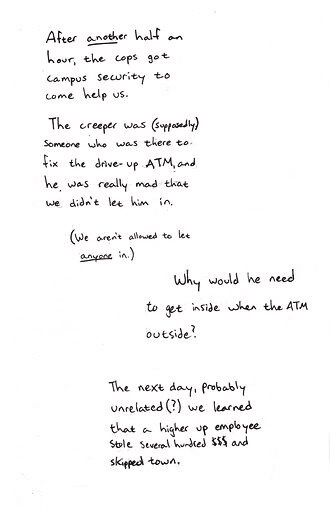 After another half an
hour, the cops got
campus security to
come help us.
The creeper was (supposedly)
someone who was there to
fix the drive-up ATM, and
he was really mad that
we didn't let him in.
(We aren't allowed to let
anyone in.)
Why would he need
to get inside when the ATM
outside?
The next day, probably
unrelated (?) we learned
that a higher up employee
stole several hundred $$$ and
skipped town.